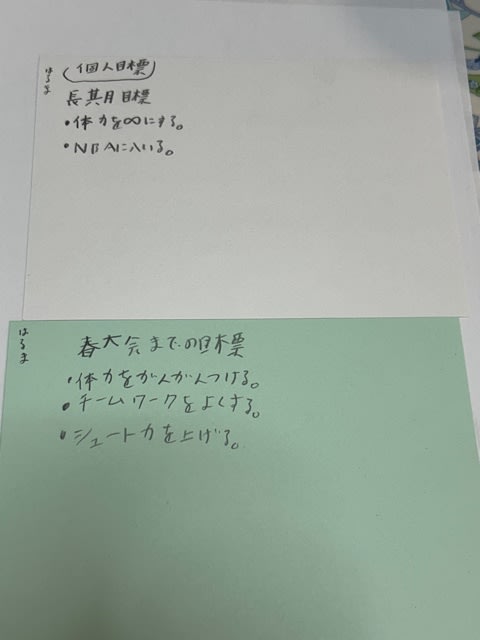 はるま
(個人目標)
長期目標
・体力を∞にする。
・NBAに入いる。
はるま
春大会までの目標
・体力をがんがんつける。
・チームワークをよくする。
・シュート力を上げる。